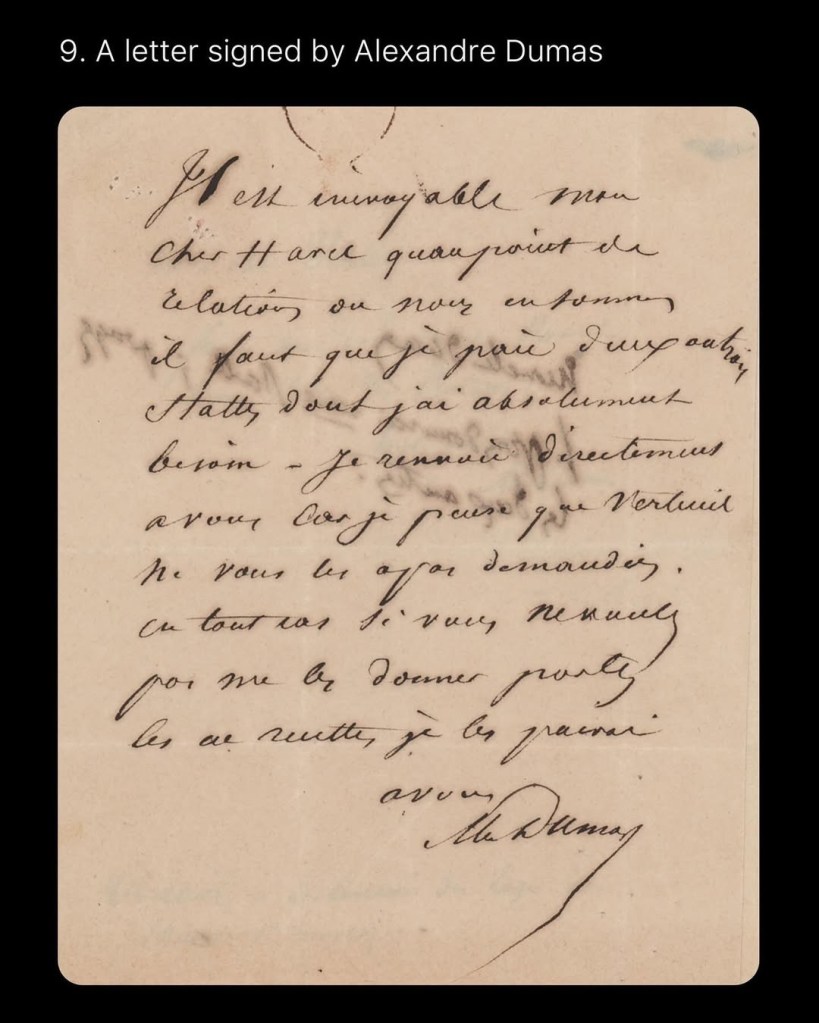 9. A letter signed by Alexandre Dumas
Il est incroyable mon
cher Harel quau point de
relations ou nous en sommes
il faut que je paie deux autres
stalles dont j'ai absolument
besoin - Je renvoie directement
a vous car je pense que Verteuil
ne vous les a pas demandées.
en tout cas si vous ne voulez
pas me les donner portez
les en recettes je les paierai
a vous
Alex Dumas